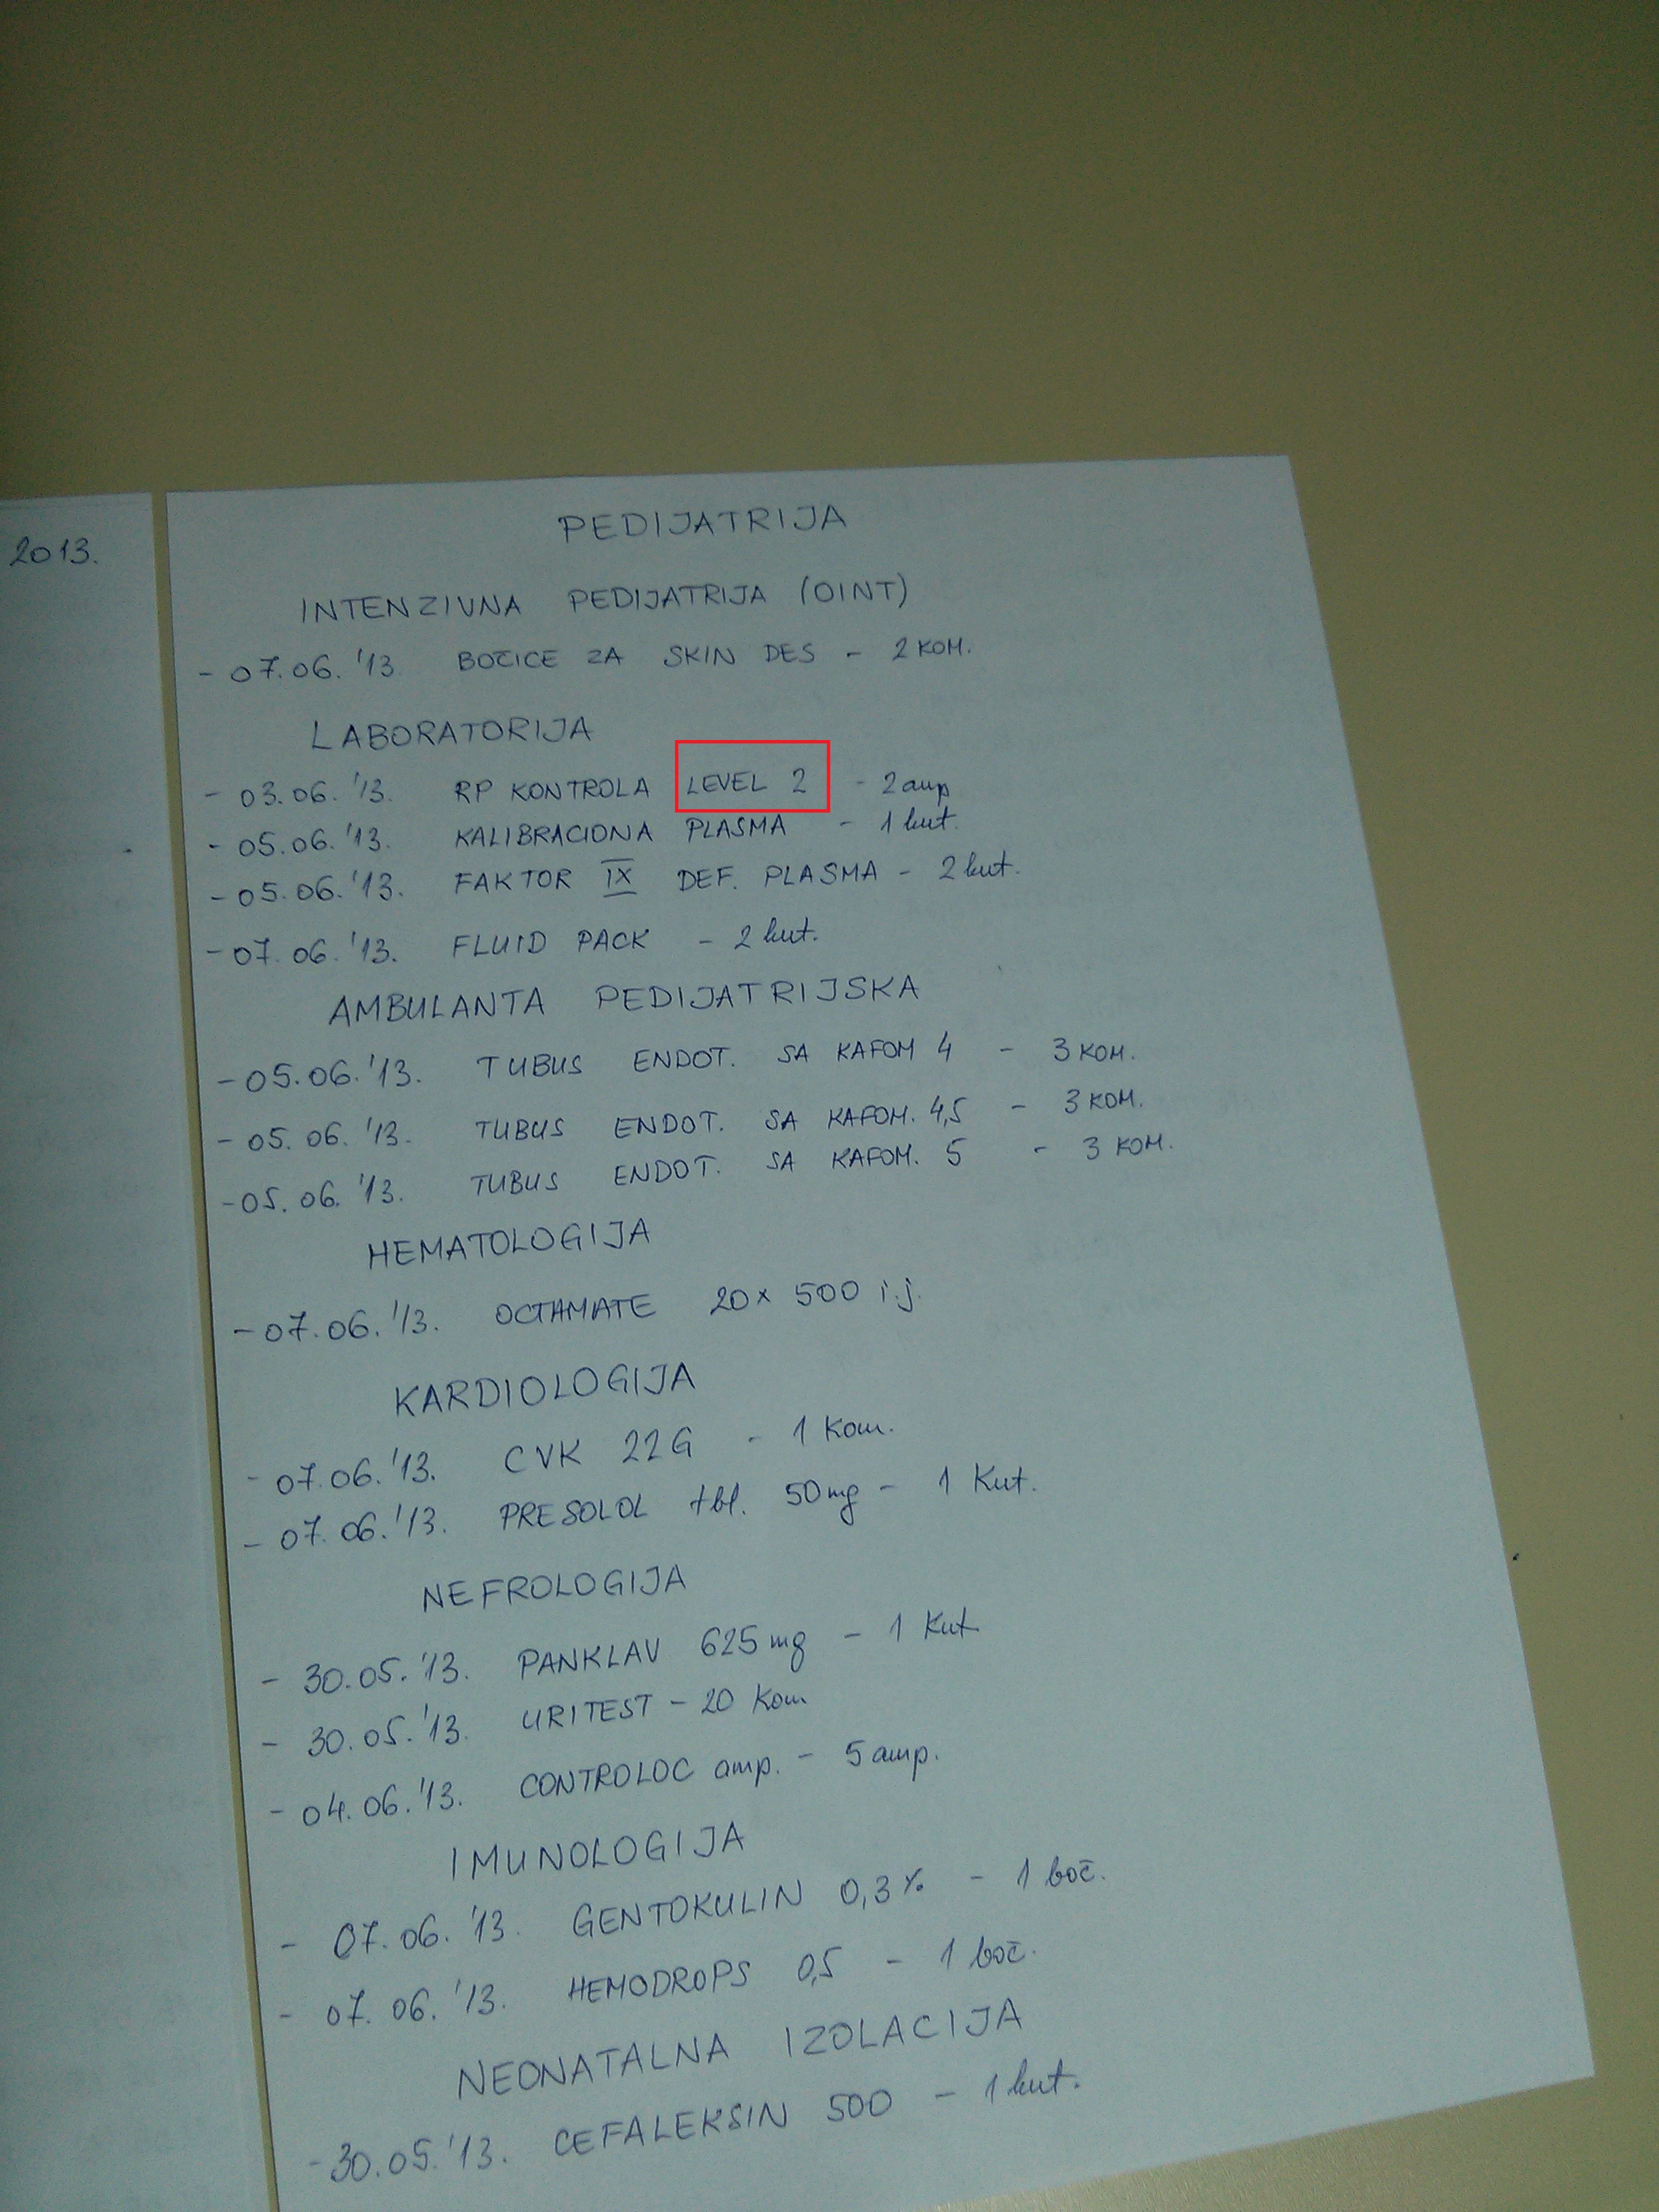 2013.
PEDIJATRIJA
INTENZIVNA PEDIJATRIJA (OINT)
- 07.06. '13 BOČICE ZA SKIN DES - 2 KOM.
LABORATORIJA
- 03.06. '13. RP KONTROLA LEVEL 2 - 2 amp
- 05.06. '13. KALIBRACIONA PLASMA - 1 kut.
- 05.06. '13. FAKTOR IX DEF. PLASMA - 2 kut.
- 07.06. '13. FLUID PACK - 2 kut.
AMBULANTA PEDIJATRIJSKA
- 05.06. '13. TUBUS ENDOT. SA KAFOM 4 - 3 KOM.
- 05.06. '13. TUBUS ENDOT. SA KAFOM. 4,5 - 3 KOM.
- 05.06. '13. TUBUS ENDOT. SA KAFOM. 5 - 3 KOM.
HEMATOLOGIJA
- 07.06. '13. OCTAMATE 20x 500 i.j.
KARDIOLOGIJA
- 07.06. '13. CVK 22G - 1 Kom.
- 07.06. '13. PRESOLOL tbl. 50mg - 1 Kut.
NEFROLOGIJA
- 30.05. '13. PANKLAV 625mg - 1 Kut
- 30.05. '13. URITEST - 20 Kom
- 04.06. '13. CONTROLOC amp. - 5 amp.
IMUNOLOGIJA
- 07.06. '13. GENTOKULIN 0,3% - 1 boč.
- 07.06. '13. HEMODROPS 0,5 - 1 boč.
NEONATALNA IZOLACIJA
- 30.05. '13. CEFALEKSIN 500 - 1 kut.